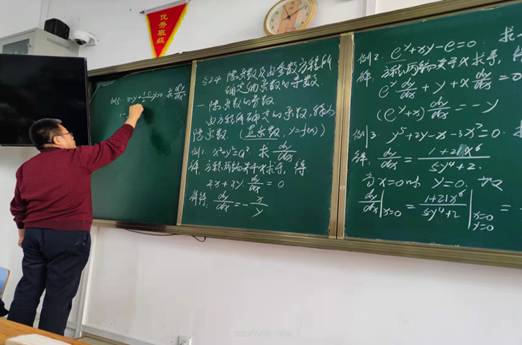 优秀班级
§2.4 隐函数及由参数方程所
确定的函数的导数
一. 隐函数的导数
由方程所确定的函数,称为
隐函数. (显函数, y=f(x))
例1: x²+y²=a² 求 dy/dx
解: 方程两端关于x求导, 得
2x+2y dy/dx = 0
解得: dy/dx = -x/y
例2: e^y+xy-e=0. 求
解: 方程两端关于x求导,
e^y dy/dx + y + x dy/dx =
(e^y+x) dy/dx = -y
例3: y⁵+2y-x-3x⁷=0. 求
解: dy/dx = (1+21x⁶)/(5y⁴+2)
当x=0时, y=0.
dy/dx|x=0 = (1+21x⁶)/(5y⁴+2)|x=0 y=0 =